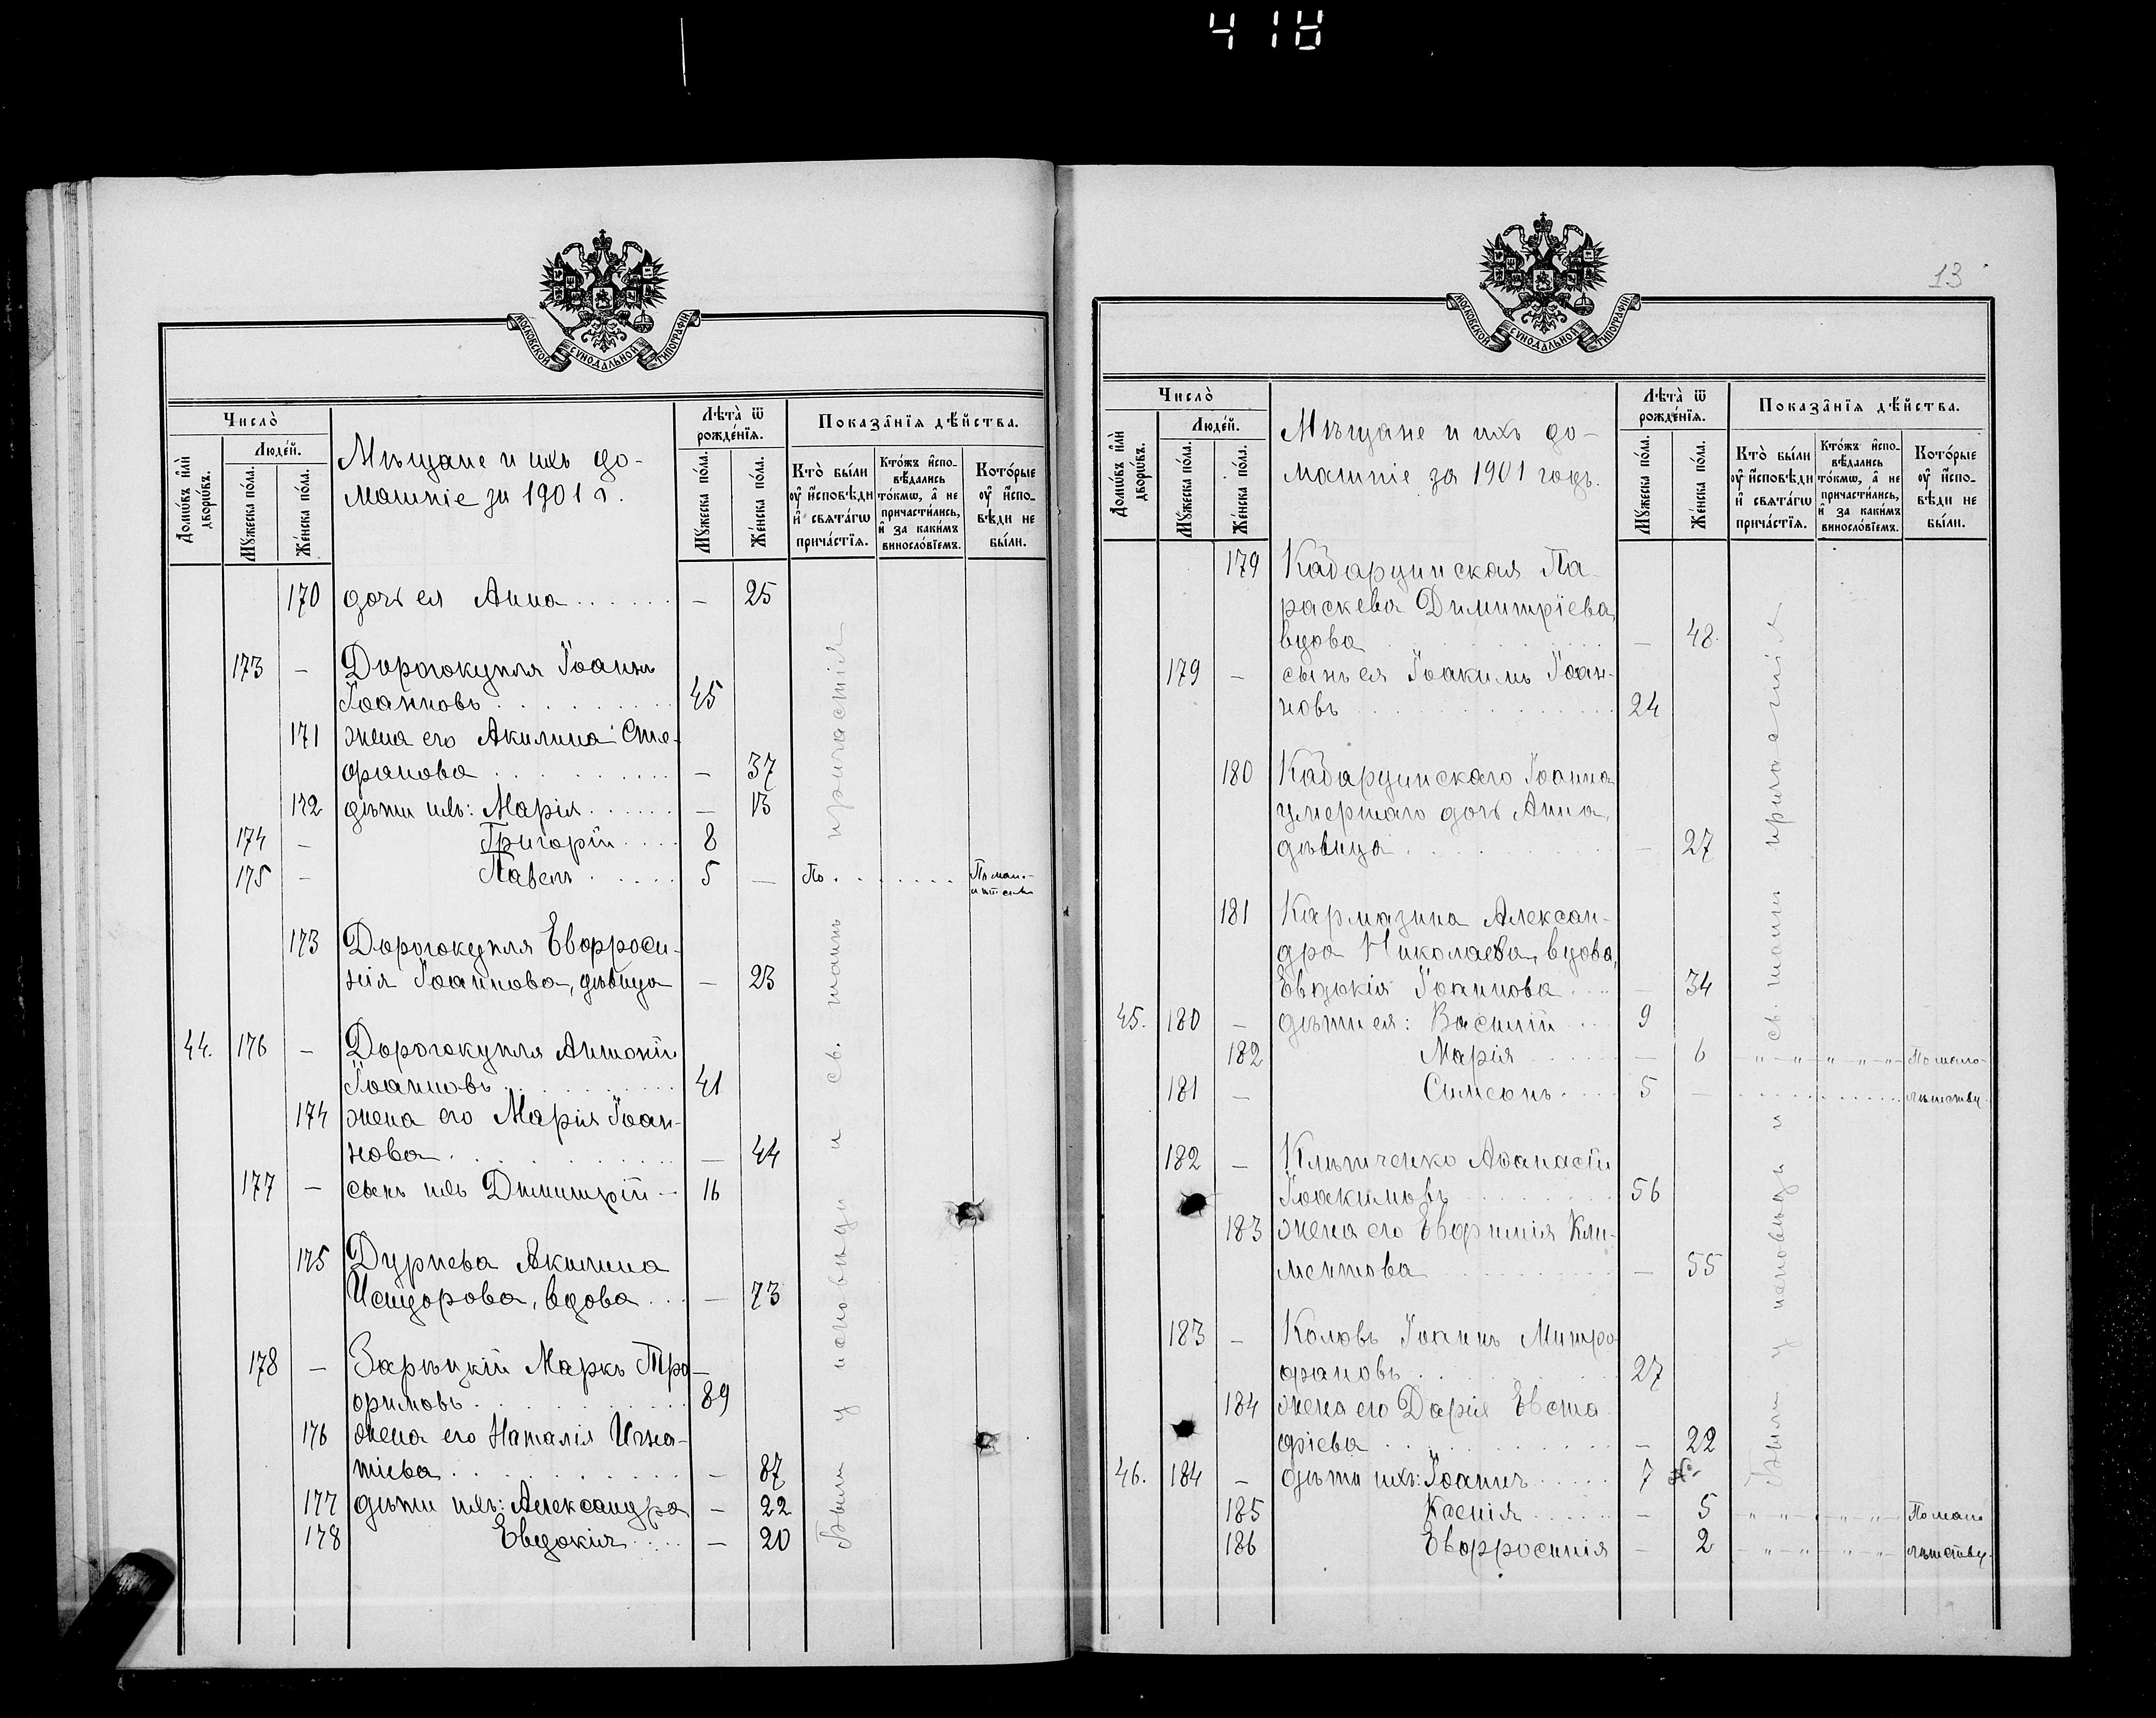 418
МОСКОВСКОЙ СѴНОДАЛЬНОЙ ТИПОГРАФІИ
Число̀
Людей.
Домѡвъ и҆лѝ дворѡвъ.
Мꙋжеска по́ла.
Же́нска по́ла.
Мѣщане и ихъ до-
машніе за 1901 г.
Лѣта̀ ѿ рожде́нїѧ.
Мꙋжеска по́ла.
Же́нска по́ла.
Показа̂нїѧ дѣ́йства.
Кто̀ бы́ли ᲂу҆ и҆́сповѣди и҆ свѧта́гѡ прича́стїѧ.
Кто́жъ и҆спо-вѣ́дались то́кмѡ, а҆ не причасти́лись, и҆ за каки́мъ винослóвїемъ.
Кото́рые ᲂу҆ и҆́спо-вѣди не бы́ли.
170 дочь ея Анна . . . . . . — 25
173 — Дорогокупля Іоаннъ
Іоанновъ . . . . . . . . 45
171 жена его Акилина Сте-
фанова . . . . . . . . — 37
172 дѣти ихъ: Марія . . . . . . — 13
174 — Григорій . . . . 8
175 — Павелъ . . . . . 5 — По . . . . . . . . По мало-
лѣтств.
173 Дорогокупля Евфроси-
нія Іоаннова, дѣвица — 23
44. 176 — Дорогокупля Антоній
Іоанновъ . . . . . . . . 41
174 жена его Марія Іоан-
нова . . . . . . . . — 44
177 — сынъ ихъ Димитрій — 16
175 Дурнева Акилина
Исидорова, вдова . . . — 73
178 — Зарѣцкій Маркъ Тро-
фимовъ . . . . . . . . 89
176 жена его Наталія Игна-
тіева . . . . . . . . — 87
177 дѣти ихъ: Александра — 22
178 Евдокія . . . . — 20
Были у исповѣди и св. таинъ причастія
13
МОСКОВСКОЙ СѴНОДАЛЬНОЙ ТИПОГРАФІИ
Число̀
Людей.
Домѡвъ и҆лѝ дворѡвъ.
Мꙋжеска по́ла.
Же́нска по́ла.
Мѣщане и ихъ до-
машніе за 1901 годъ.
Лѣта̀ ѿ рожде́нїѧ.
Мꙋжеска по́ла.
Же́нска по́ла.
Показа̂нїѧ дѣ́йства.
Кто̀ бы́ли ᲂу҆ и҆́сповѣди и҆ свѧта́гѡ прича́стїѧ.
Кто́жъ и҆спо-вѣ́дались то́кмѡ, а҆ не причасти́лись, и҆ за каки́мъ винослóвїемъ.
Кото́рые ᲂу҆ и҆́спо-вѣди не бы́ли.
179 Кадарцинская Па-
раскева Димитріева,
вдова . . . . . . . . — 48.
179 — сынъ ея Іоакимъ Іоан-
новъ . . . . . . . . 24
180 Кадарцинскаго Іоанна
умершаго дочь Анна,
дѣвица . . . . . . . . — 27
181 Кармазина Алексан-
дра Николаева, вдова,
Евдокія Іоаннова . . . — 34
45. 180 — дѣти ея: Василій . . . 9
182 Марія . . . . . . — 6 По мало-
181 — Симеонъ . . . . 5 — лѣтству.
182 — Клѣтченко Аѳанасій
Іоакимовъ . . . . . . 56
183 жена его Евфимія Кли-
ментова . . . . . . . . — 55
183 — Коловъ Іоаннъ Митро-
фановъ . . . . . . . . 27
184 жена его Дарія Евста-
фіева . . . . . . . . — 22
46. 184 — дѣти ихъ: Іоаннъ . . . . . 7
185 Ксенія . . . . . — 5 По мало
186 Евфросинія — 2 лѣтству.
Были у исповѣди и св. таинъ причастія